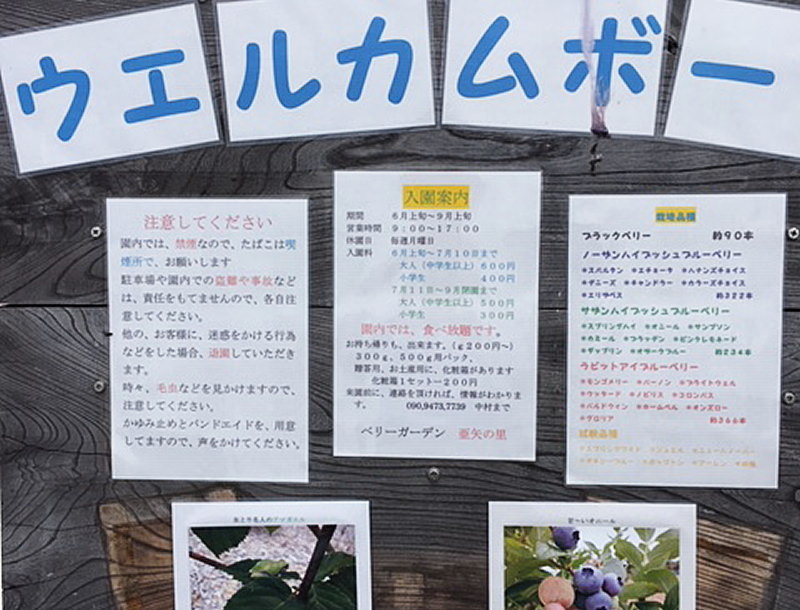 ウエルカムボー
注意してください
園内では、禁煙なので、たばこは喫
煙所で、お願いします
駐車場や園内での盗難や事故など
は、責任をもてませんので、各自注
意してください。
他の、お客様に、迷惑をかける行為
などをした場合、退園していただき
ます。
時々、毛虫などを見かけますので、
注意してください。
かゆみ止めとバンドエイドを、用意
してますので、声をかけてください。
入園案内
期間 6月上旬～9月上旬
営業時間 9：00～17：00
休園日 毎週月曜日
入園料 6月上旬～7月10日まで
大人（中学生以上）600円
小学生 400円
7月11日～9月閉園まで
大人（中学生以上）500円
小学生 300円
園内では、食べ放題です。
お持ち帰りも、出来ます。（g200円～）
300g、500g用パック、
贈答用、お土産用に、化粧箱があります
化粧箱1セット－200円
来園前に、連絡を頂ければ、情報がわかりま
す。 090,9473,7739 中村まで
ベリーガーデン 亜矢の里
栽培品種
ブラックベリー 約90本
ノーサンハイブッシュブルーベリー
※スパルタン ※エチョータ ※ハナンズチョイス
※デニーズ ※チャンドラー ※カラーズチョイス
※エリザベス 約322本
サザンハイブッシュブルーベリー
※スプリングハイ ※オニール ※サンプソン
※カミール ※フラッデン ※ピンクレモネード
※ザップリン ※オザークブルー 約234本
ラビットアイブルーベリー
※モンゴメリー ※バーノン ※ブライトウェル
※ウッタード ※ノビリス ※コロンバス
※バルドウィン ※ホームベル ※オンズロー
※グロリア 約366本
試験品種